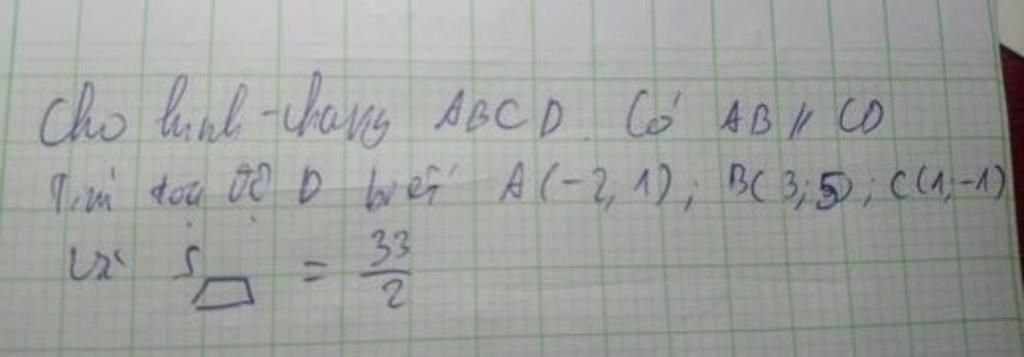 Cho hình thang ABCD. Có AB // CD
Tìm tọa độ D biết A(-2, 1); B(3; 5); C(1; -1)
Và S▱ = 33/2